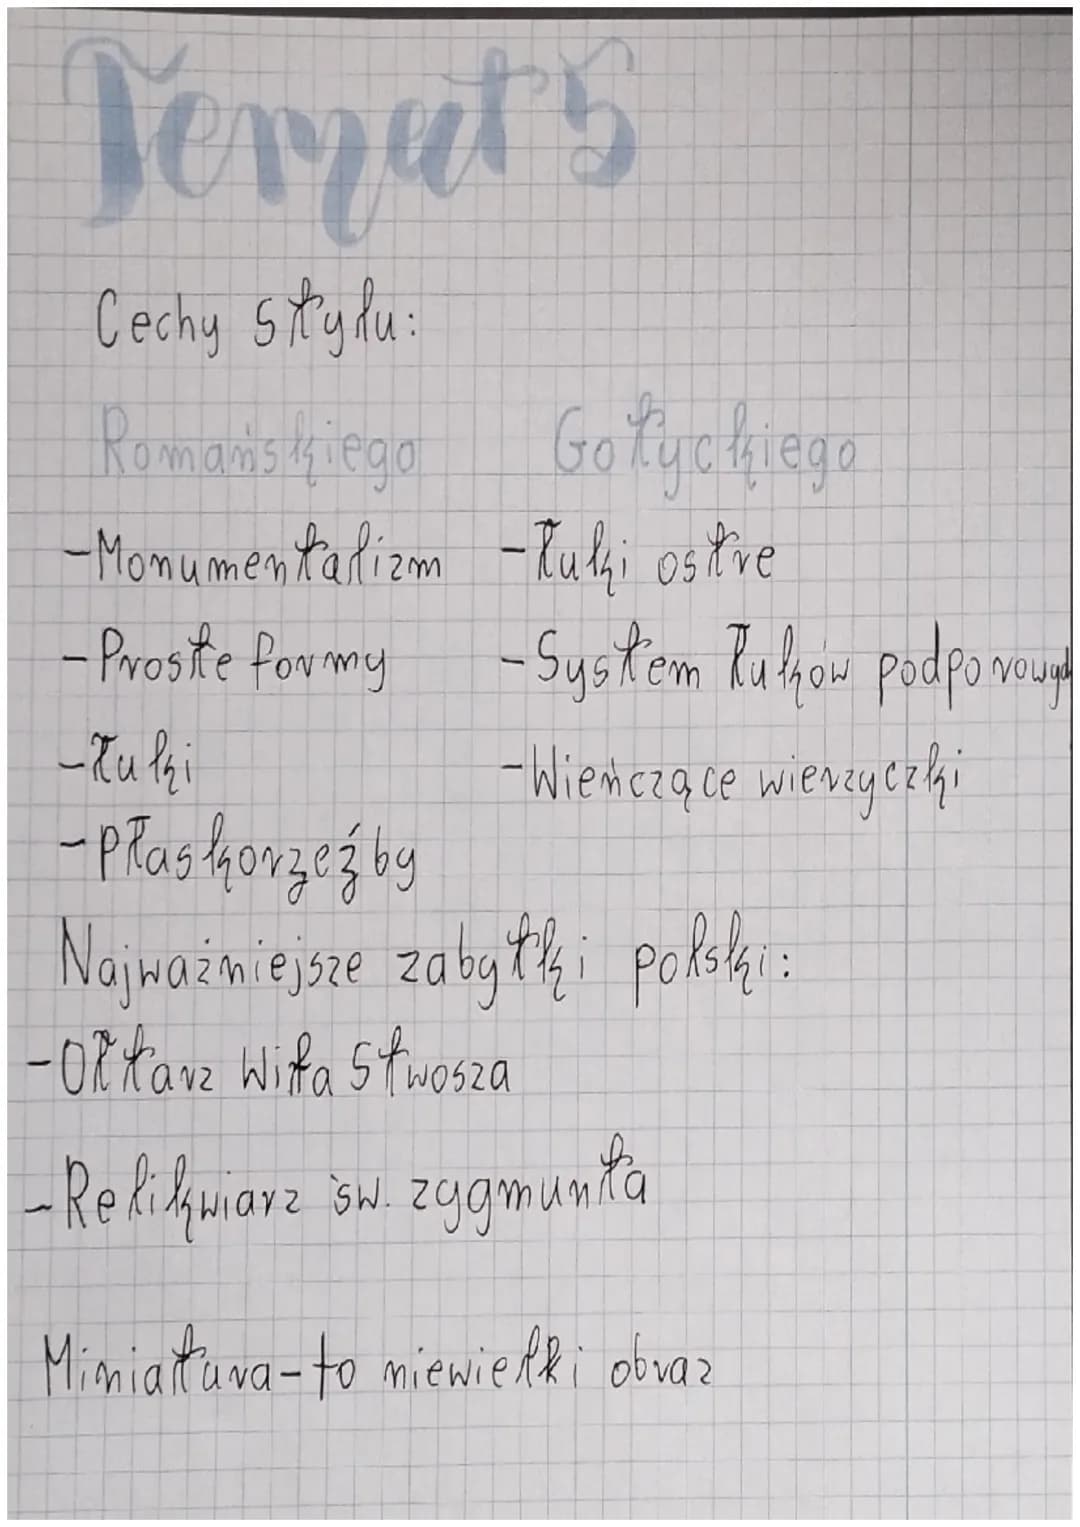 Temat 5
Cechy stylu:
Romańskiego Gotyckiego
-Monumentalizm -Łuki ostre
-Proste formy -System łuków podporowych
-Łuki -Wieńczące wierzyczki
-Płaskorzeźby
Najważniejsze zabytki polski:
-Ołtarz Wita Stwosza
-Relikwiarz św. zygmunta
Miniatura-to niewielki obraz